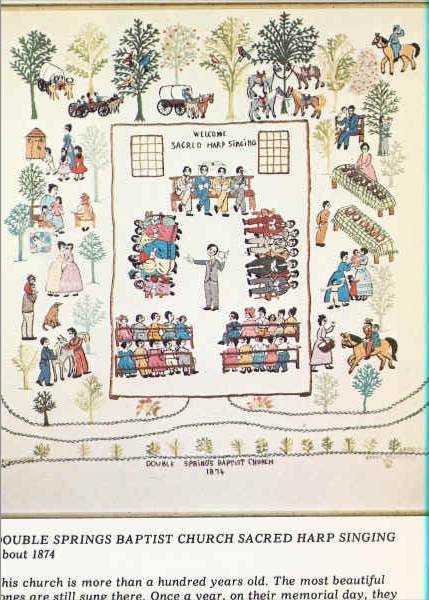 WELCOME
SACRED HARP SINGING
DOUBLE SPRINGS BAPTIST CHURCH
1874
OUBLE SPRINGS BAPTIST CHURCH SACRED HARP SINGING
bout 1874
his church is more than a hundred years old. The most beautiful
ongs are still sung there. Once a year, on their memorial day, they